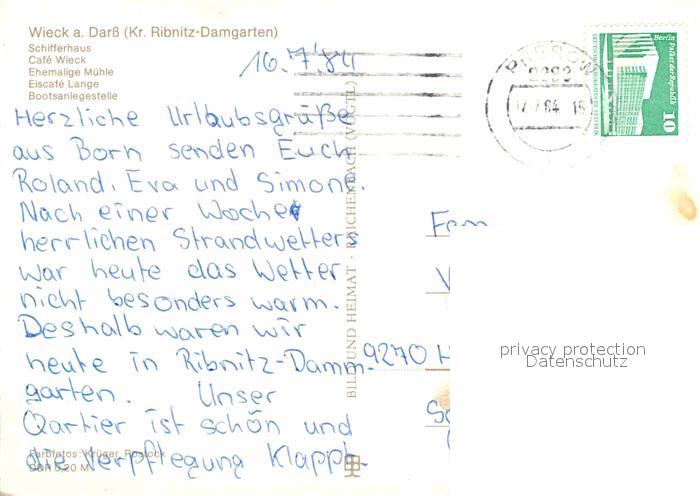 Wieck a. Darß (Kr. Ribnitz-Damgarten)
Schifferhaus
Café Wieck
Ehemalige Mühle
Eiscafé Lange
Bootsanlegestelle
16.7.'84
Herzliche Urlaubsgrüße
aus Born senden Euch
Roland, Eva und Simone.
Nach einer Woche
herrlichen Strandwetters
war heute das Wetter
nicht besonders warm.
Deshalb waren wir
heute in Ribnitz-Damm-
garten. Unser
Qartier ist schön und
die Verpflegung klappt.
Farbfotos: Krüger, Rostock
DDR 0,20 M
BILD UND HEIMAT · REICHENBACH (VOGTL)
PREROW
17.7.84 15
Berlin Palast der Republik
10
9270 H
privacy protection
Datenschutz